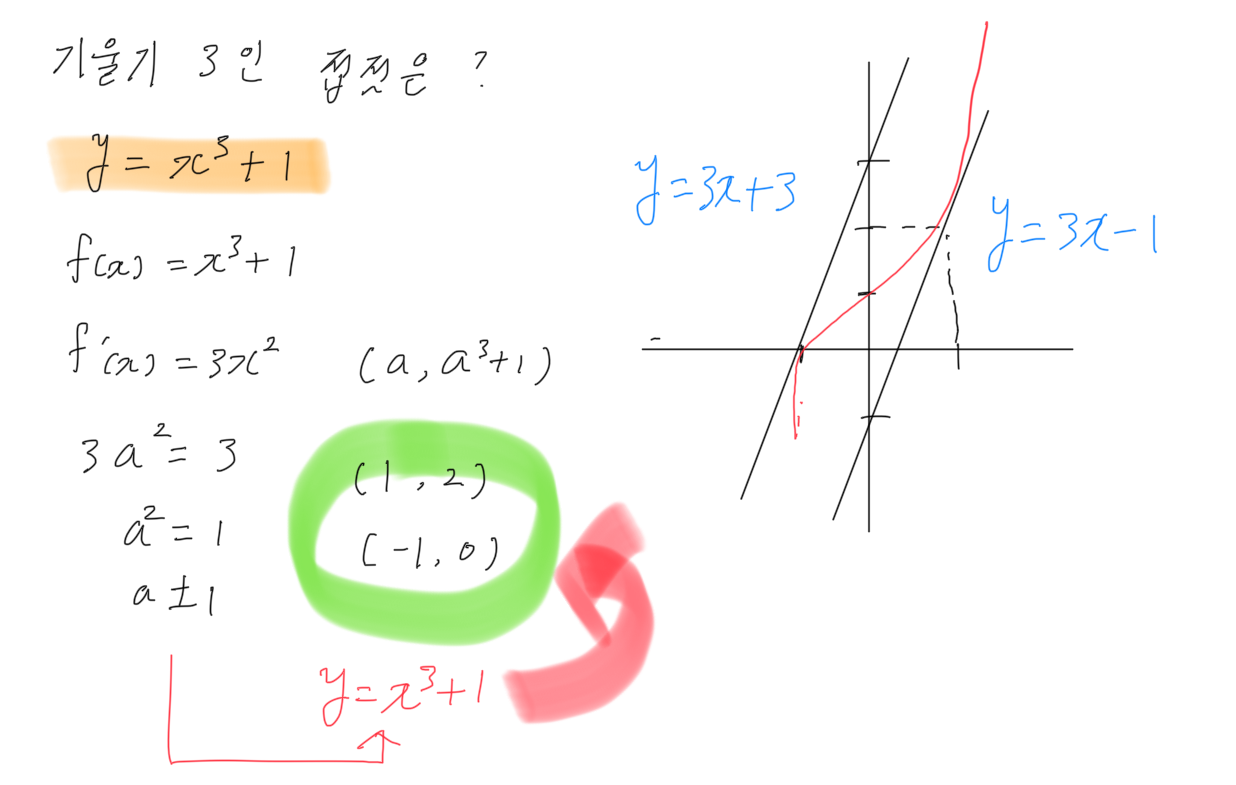 기울기 3인 접점은?
y = x³ + 1
f(x) = x³ + 1
f'(x) = 3x² (a, a³+1)
3a² = 3
(1, 2)
a² = 1
(-1, 0)
a ± 1
y = x³ + 1
y = 3x + 3
y = 3x - 1